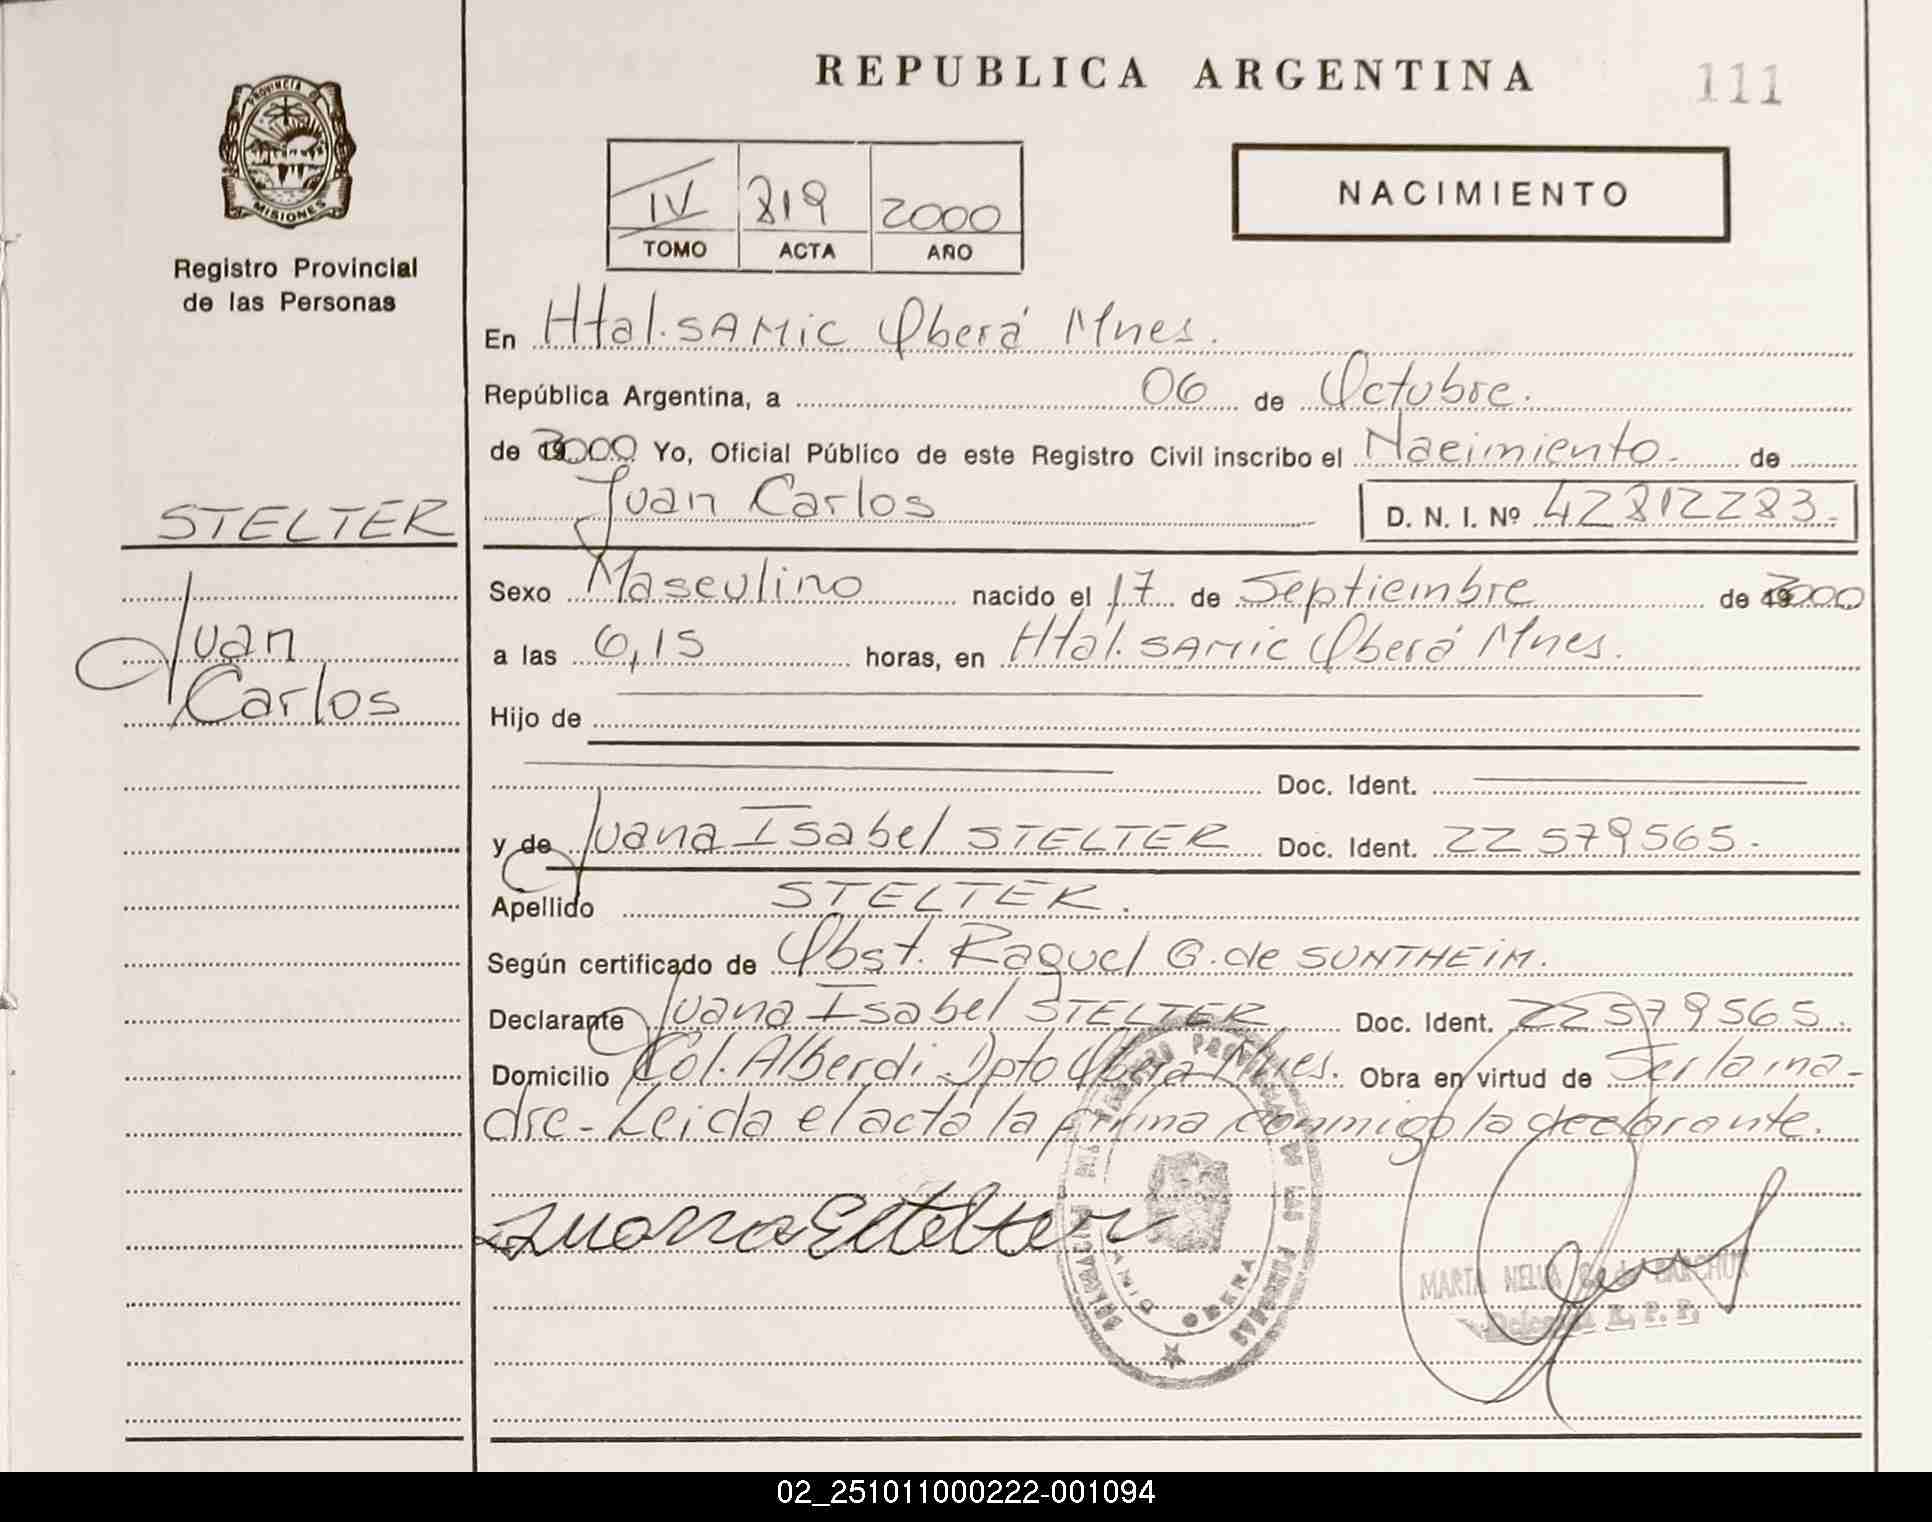 REPUBLICA ARGENTINA
111
PROVINCIA DE
MISIONES
Registro Provincial
de las Personas
IV 819 2000
TOMO ACTA AÑO
NACIMIENTO
En Htal. SAMiC Oberá Mnes.
República Argentina, a 06 de Octubre.
de 2000 Yo, Oficial Público de este Registro Civil inscribo el Nacimiento. de
Juan Carlos D. N. I. Nº 42812283.
STELTER
Juan
Carlos
Sexo Masculino nacido el 17 de Septiembre de 2000
a las 6,15 horas, en Htal. SAMiC Oberá Mnes.
Hijo de
Doc. Ident.
y de Juana Isabel STELTER Doc. Ident. 22579565.
Apellido STELTER.
Según certificado de Obst. Raquel G. de SUNTHEiM.
Declarante Juana Isabel STELTER Doc. Ident. 22579565.
Domicilio Col. Alberdi Dpto Oberá Mnes. Obra en virtud de Ser la ma-
dre - Leida el acta la firma conmigo la declarante.
DELEGACION DEL REGISTRO PROVINCIAL DE LAS PERSONAS
OBERA
MARTA NELVA G. de
Delegada R. P. P.
02_251011000222-001094